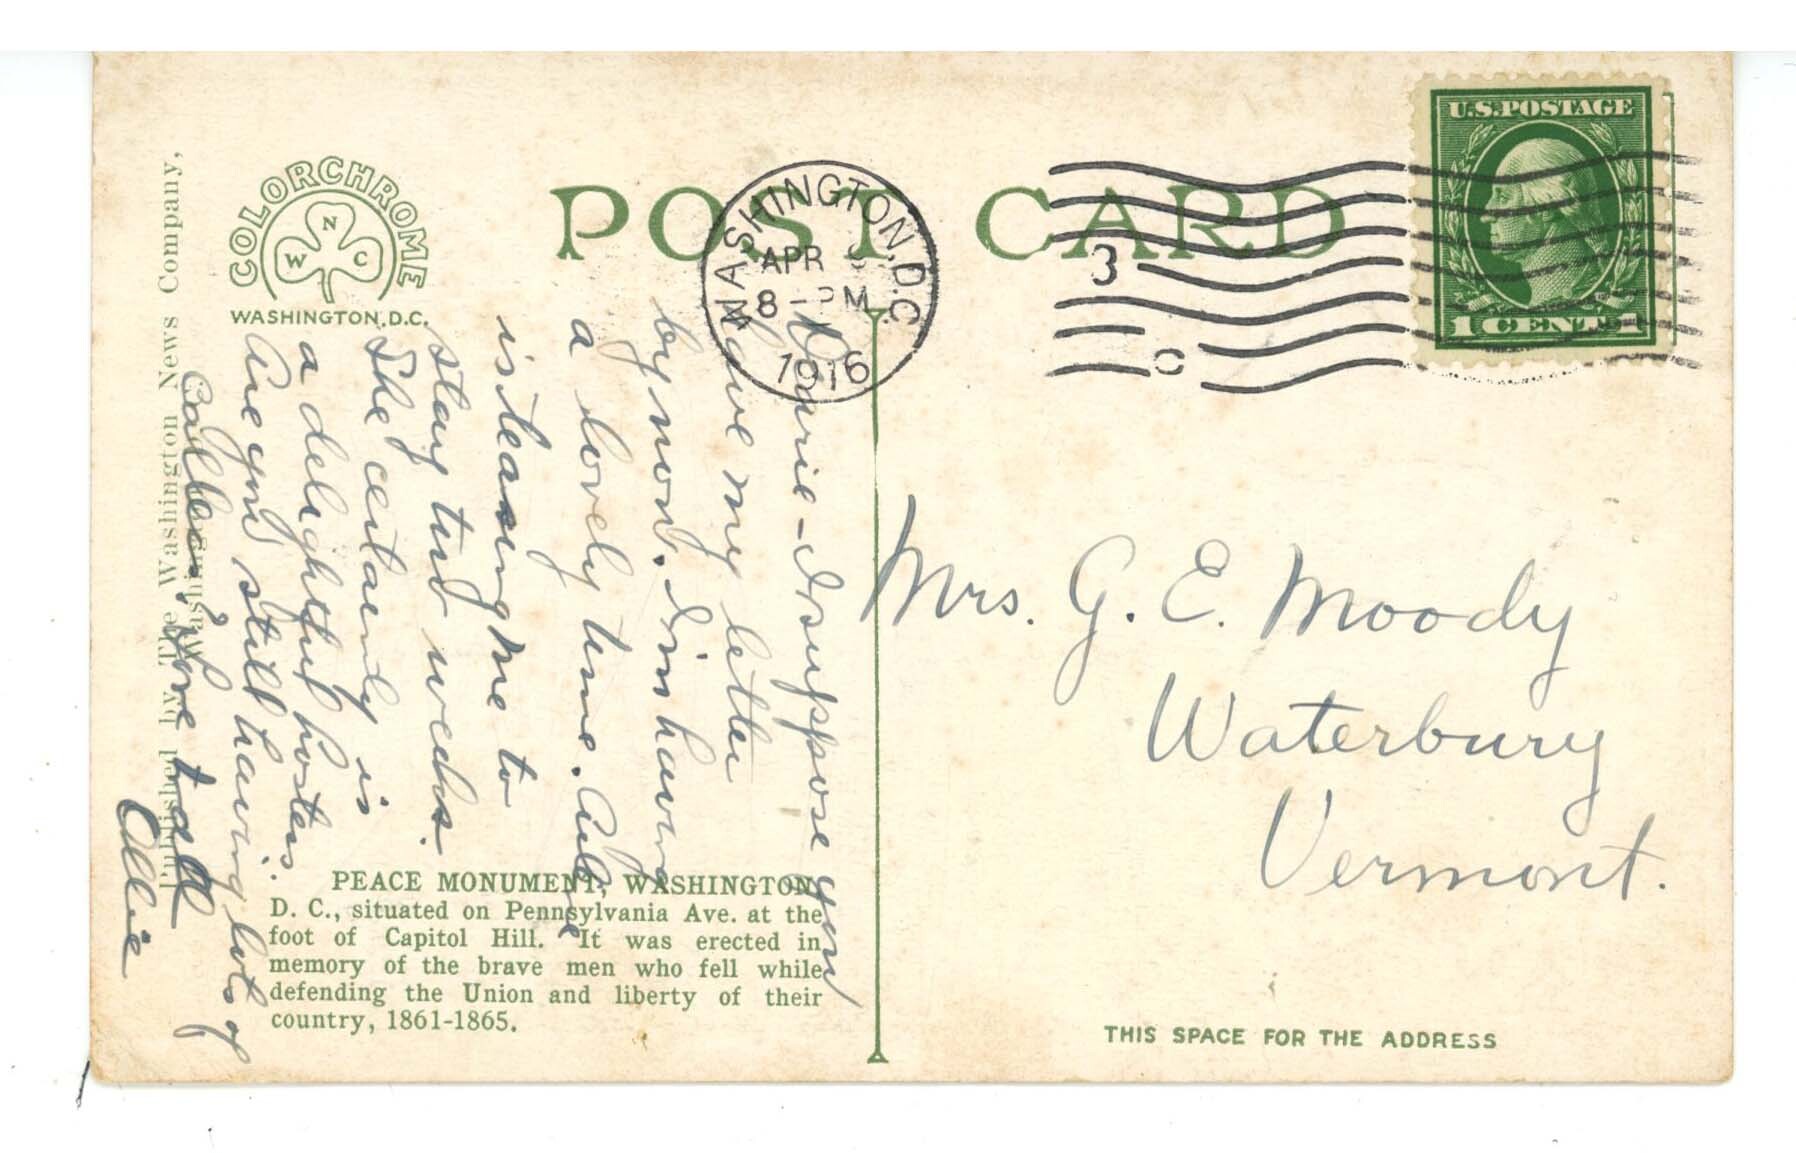 POST CARD
COLORCHROME
N
W C
WASHINGTON, D.C.
Published by The Washington News Company,
Washington
WASHINGTON, D.C.
APR
8 - PM
1916
3
U.S. POSTAGE
1 CENT 1
I suppose you
have my letter
by now. I'm having
a lovely time.
is teasing me to
stay two weeks.
She certainly is
a delightful hostess.
Are you still having lots of
Callers? Love to all
Allie
PEACE MONUMENT, WASHINGTON,
D. C., situated on Pennsylvania Ave. at the
foot of Capitol Hill. It was erected in
memory of the brave men who fell while
defending the Union and liberty of their
country, 1861-1865.
Mrs. G. E. Moody
Waterbury
Vermont.
THIS SPACE FOR THE ADDRESS